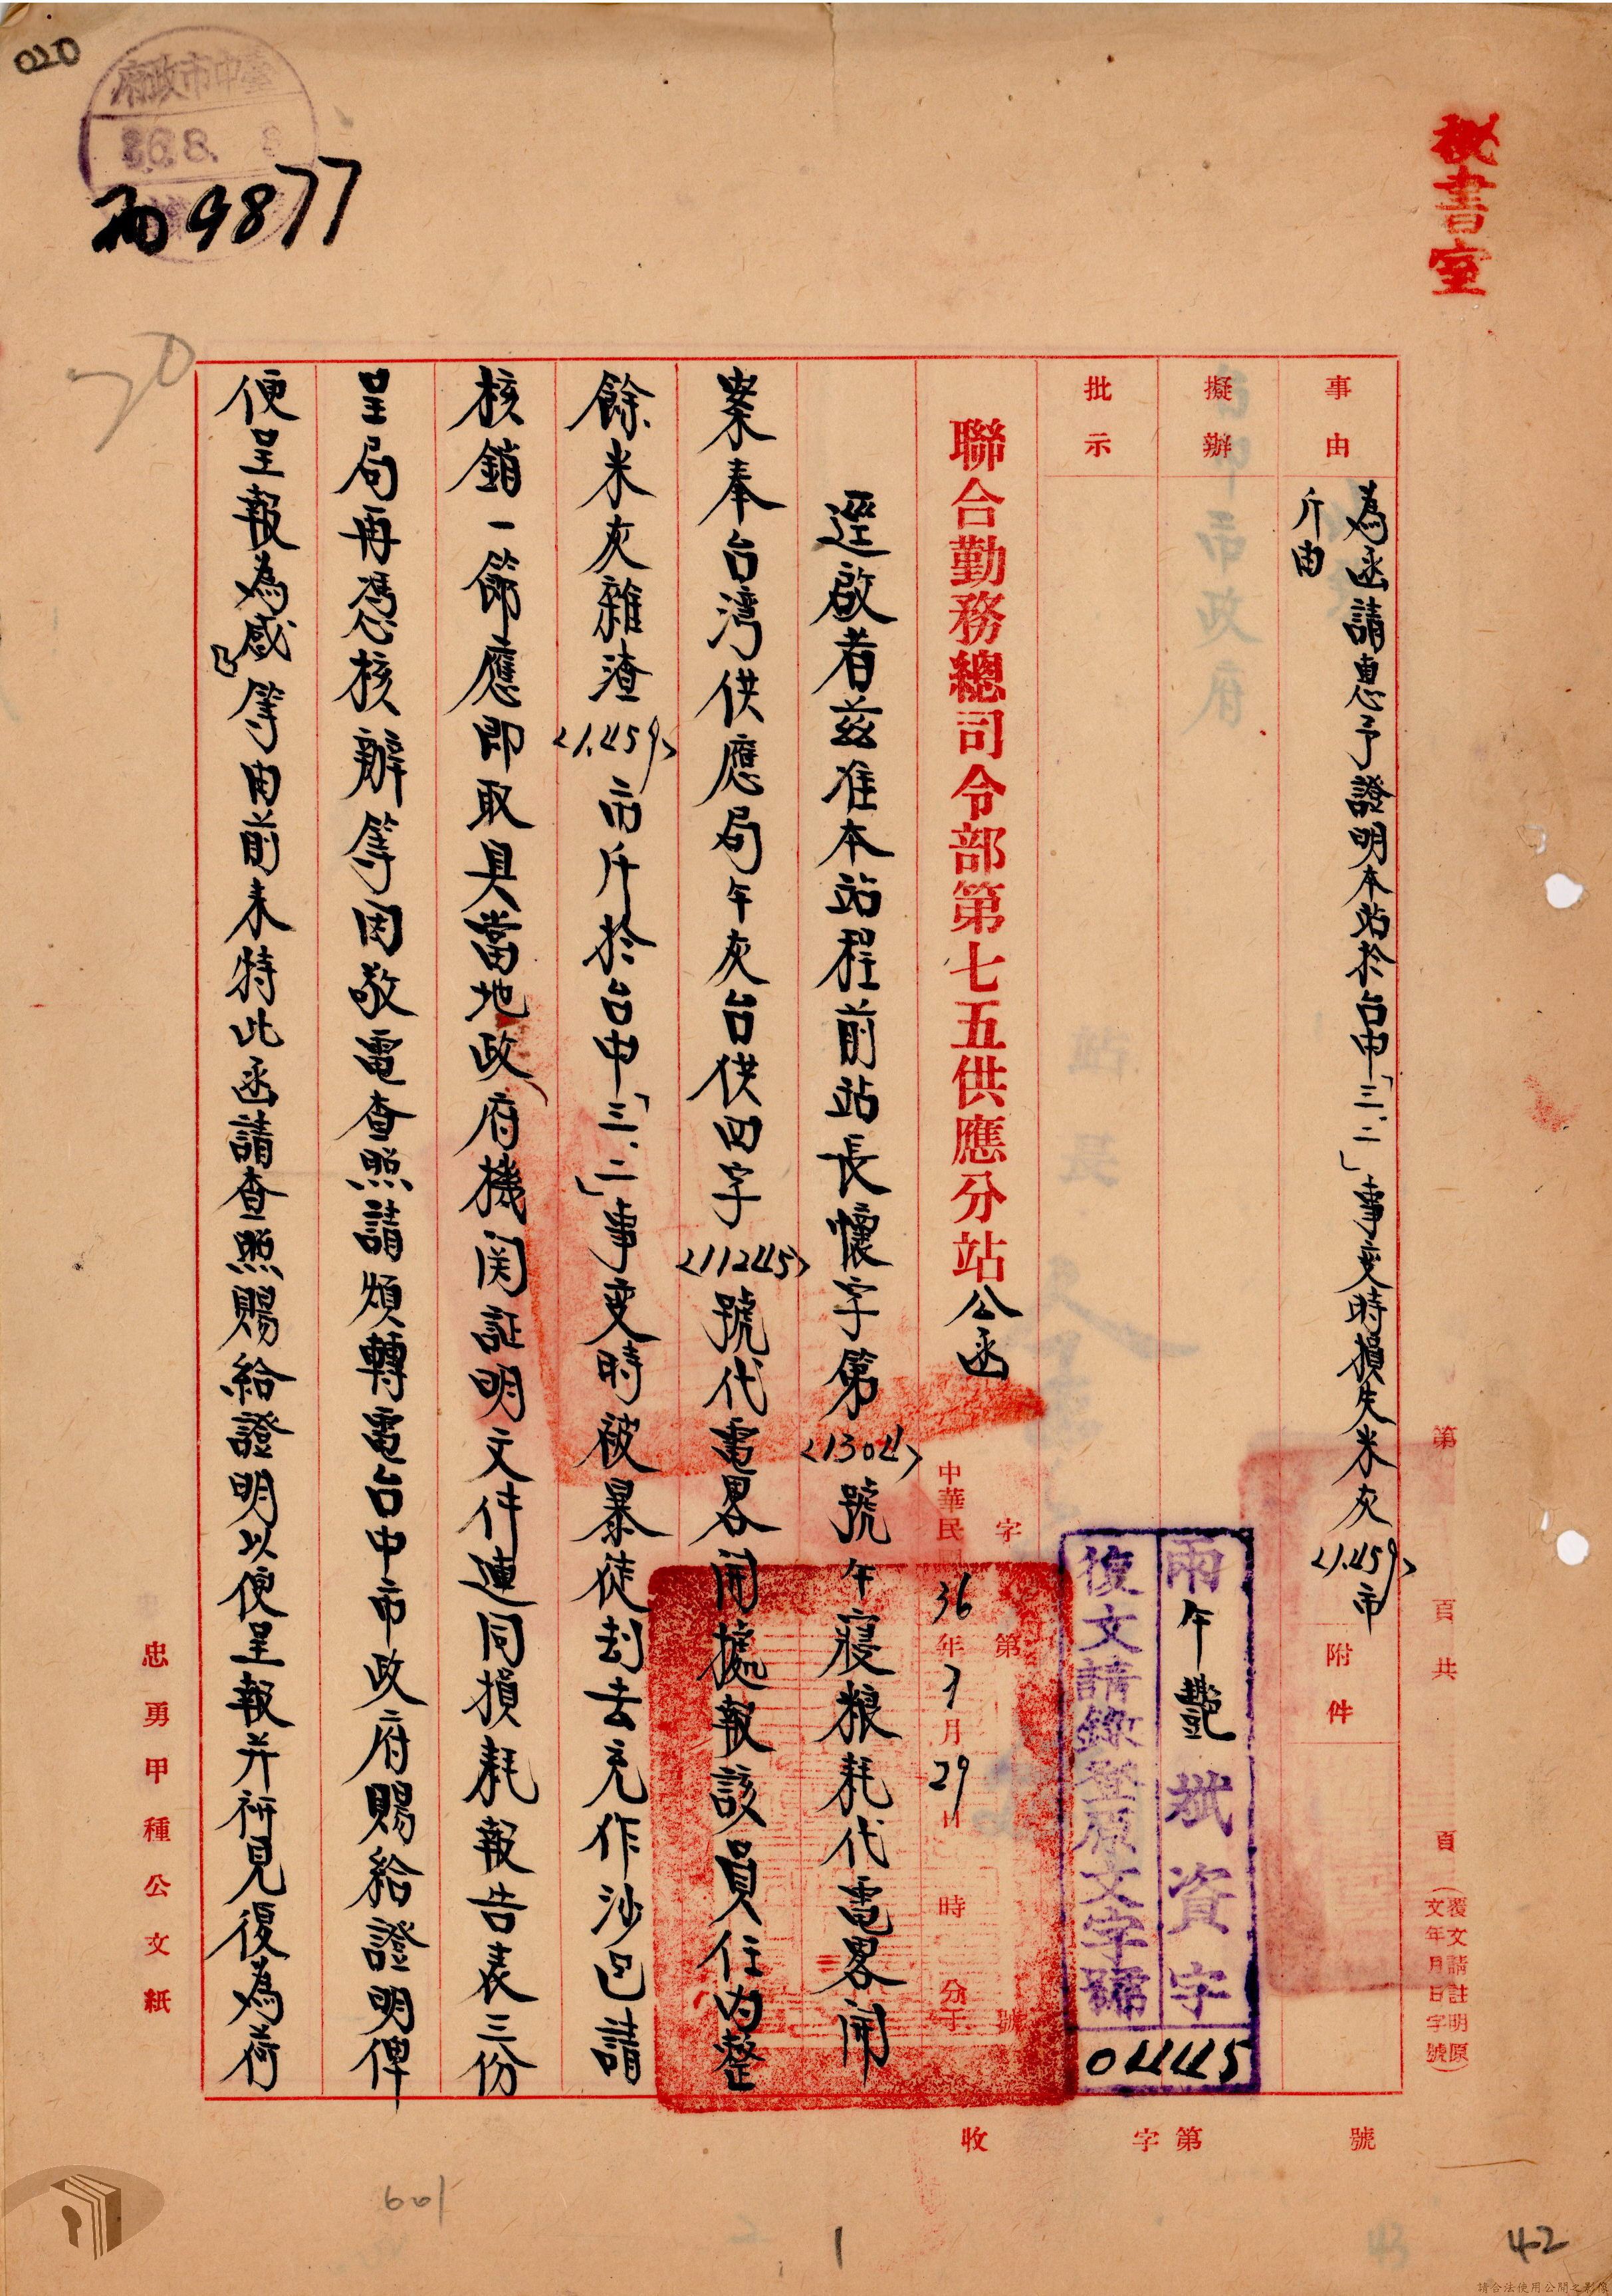 020
臺中市政府
36.8.
9877
秘書室
第 頁 共 頁
(覆文請註明原
文年月日字號)
事由
為函請惠予證明本站於台中「三.二」事变時損失米灰<1.459>市
斤由
附件
擬辦
批示
雨午艷斌資字
復文請敘登原文字號
04445
聯合勤務總司令部第七五供應分站公函
字第 號
中華民 36年7月29日 時 分于
逕啟者茲准本站程前站長懷字第<1304>號午寢粮耗代電畧開
案奉台湾供應局午灰台供四字<11245>號代電畧開據報該員任内整
餘米灰雜渣<1.459>市斤於台中「三.二」事变時被暴徒刦去充作沙包請
核銷一節應即取具當地政府機関証明文件連同損耗報告表三份
呈局再憑核辦等因敬電查照請煩轉電台中市政府賜給證明俾
便呈報為感等由前来特此函請查照賜給證明以便呈報并祈見復為荷
忠勇甲種公文紙
收 字第 號
601
1
42
請合法使用公開之影像